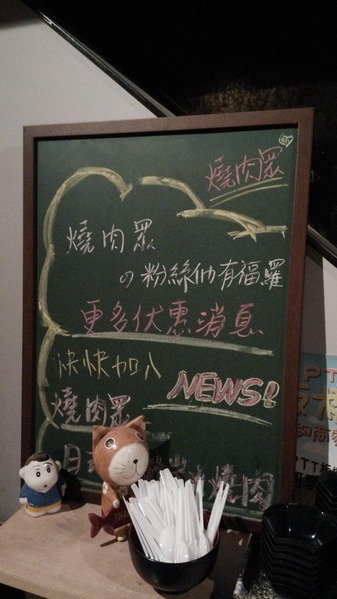 燒肉眾
燒肉眾
の粉絲們有福囉
更多优惠消息
快快加入
NEWS!
燒肉眾
燒肉